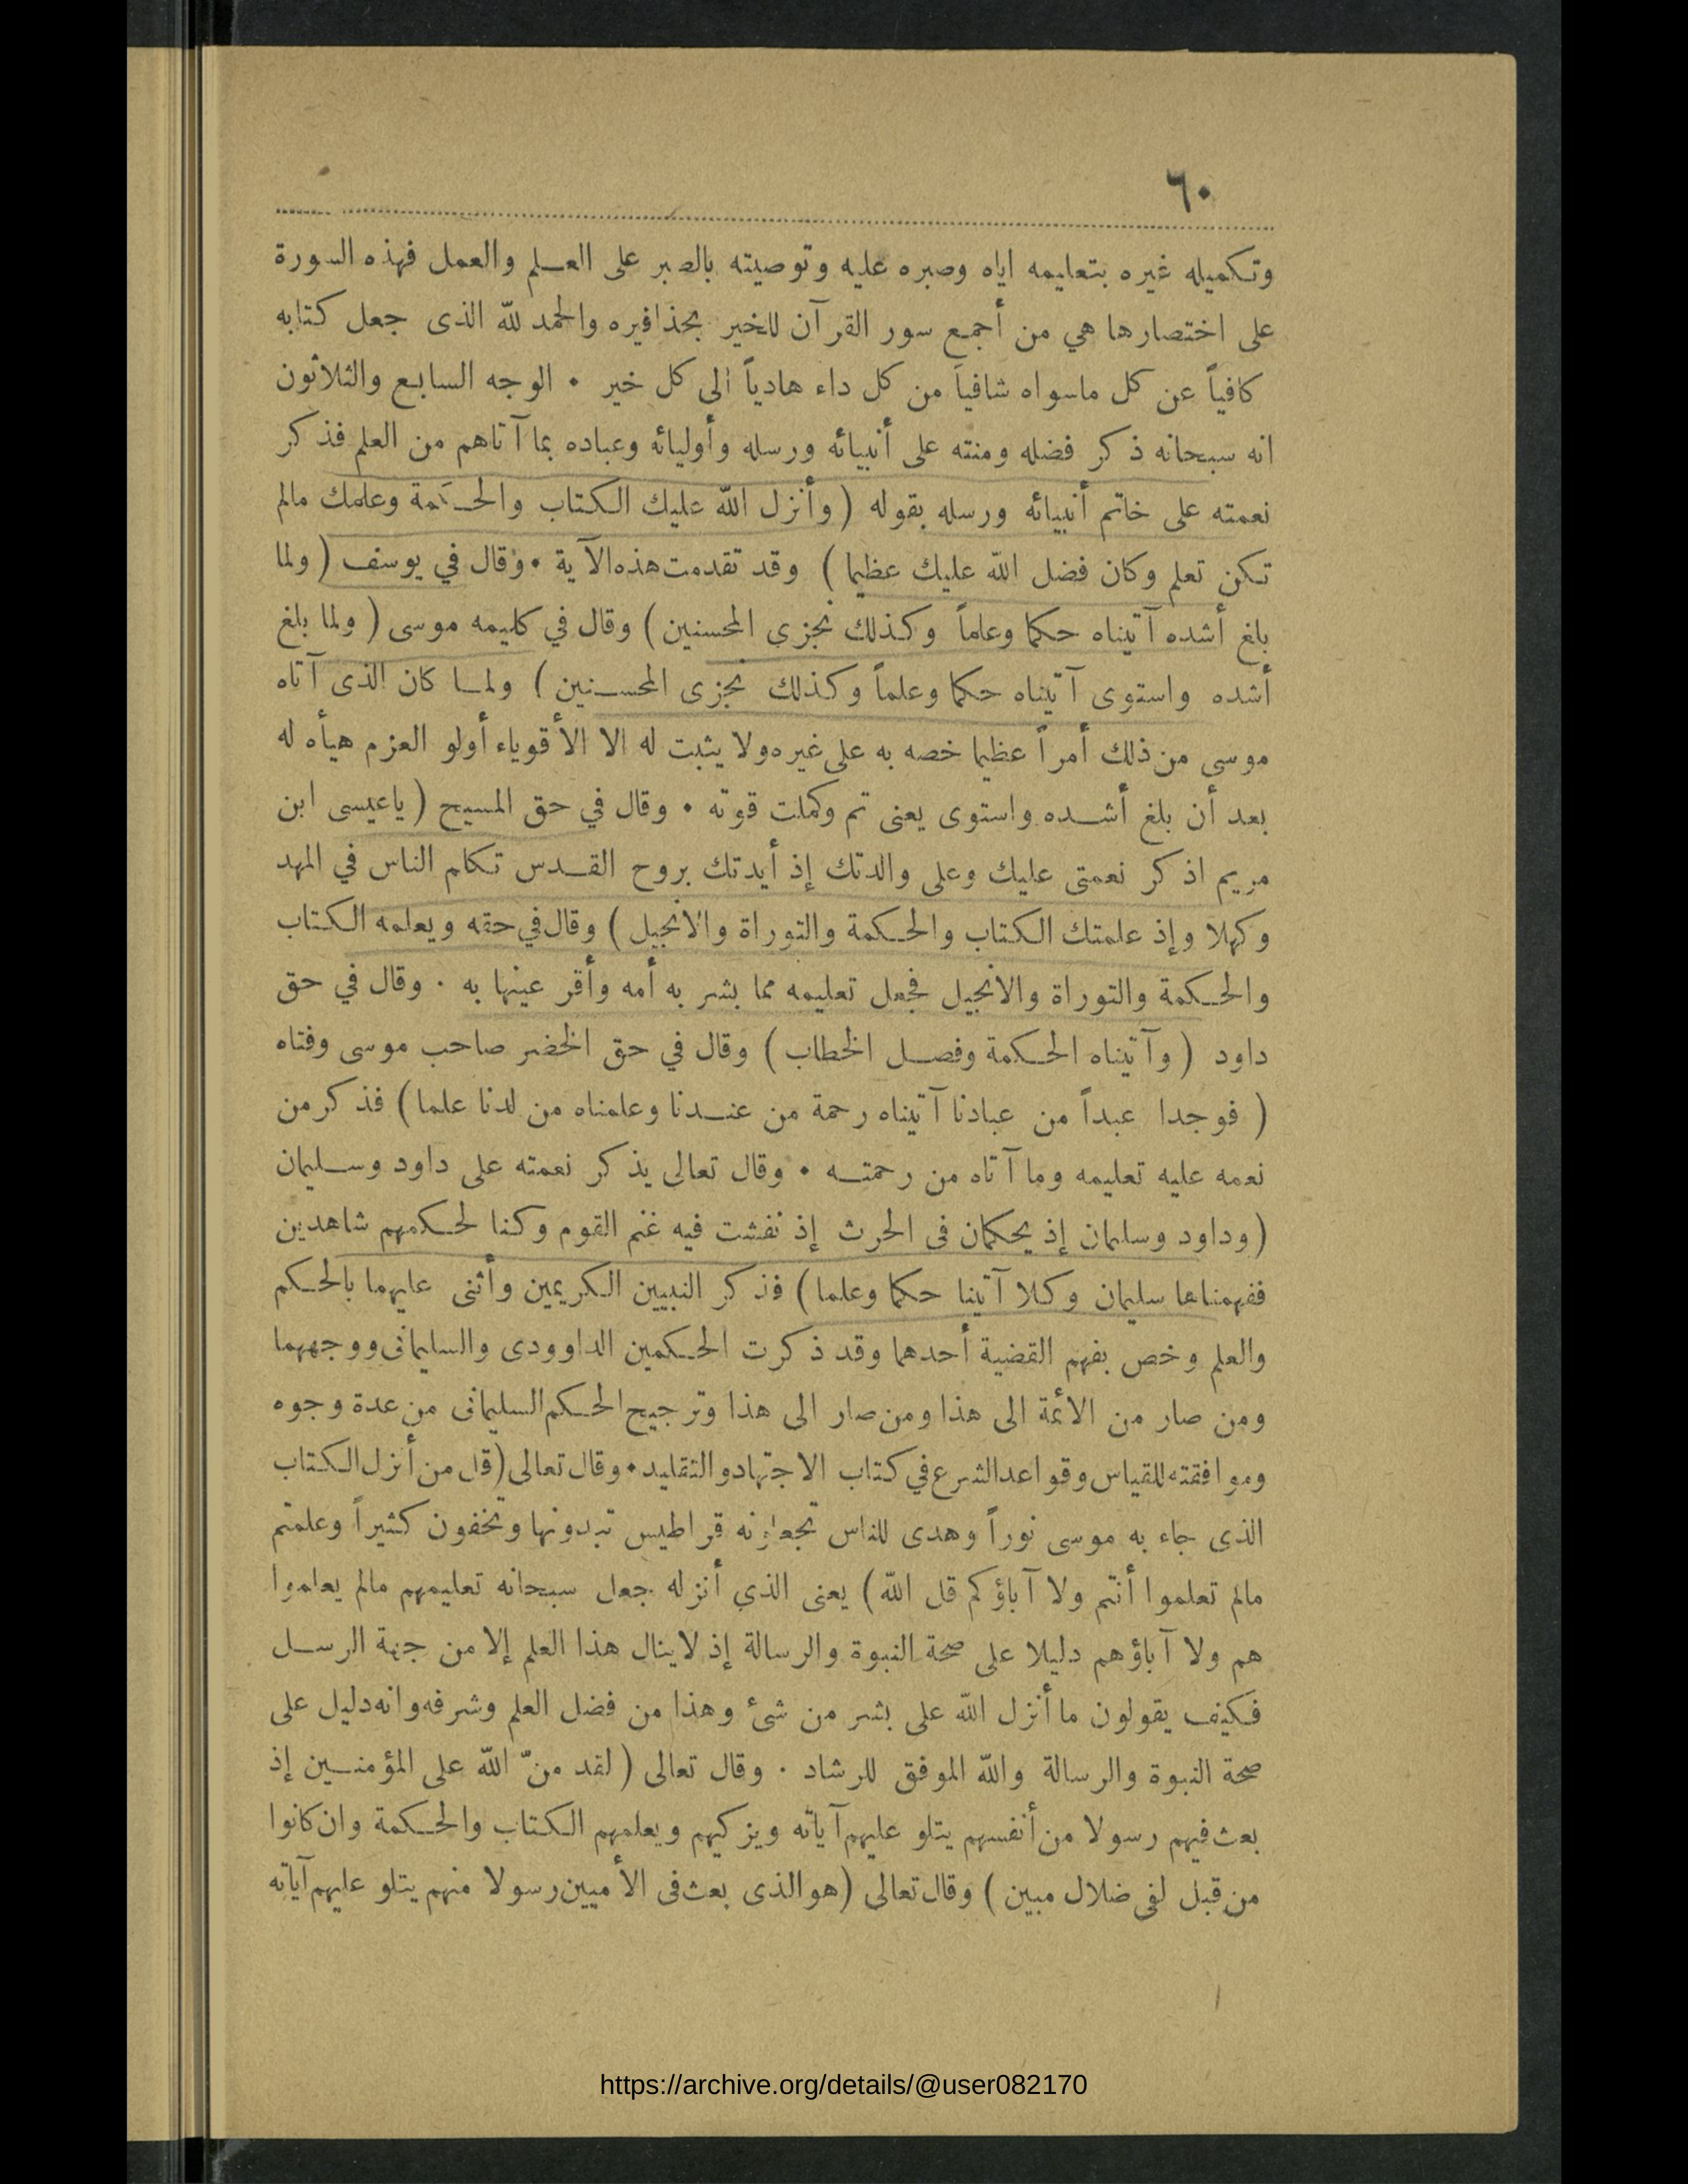 ٦٠
وتكميله غيره بتعليمه اياه وصبره عليه وتوصيته بالصبر على العلم والعمل فهذه السورة
على اختصارها هي من أجمع سور القرآن للخير بحذافيره والحمد لله الذى جعل كتابه
كافياً عن كل ماسواه شافياً من كل داء هادياً الى كل خير • الوجه السابع والثلاثون
انه سبحانه ذكر فضله ومنته على أنبيائه ورسله وأوليائه وعباده بما آتاهم من العلم فذكر
نعمته على خاتم أنبيائه ورسله بقوله ( وأنزل الله عليك الكتاب والحكمة وعلمك مالم
تكن تعلم وكان فضل الله عليك عظيما ) وقد تقدمت هذه الآية • وقال في يوسف ( ولما
بلغ أشده آتيناه حكما وعلماً وكذلك نجزى المحسنين ) وقال في كليمه موسى ( ولما بلغ
أشده واستوى آتيناه حكما وعلماً وكذلك نجزى المحسنين ) ولما كان الذى آتاه
موسى من ذلك أمراً عظيما خصه به على غيره ولا يثبت له الا الأقوياء أولو العزم هيأه له
بعد أن بلغ أشده واستوى يعنى تم وكملت قوته • وقال في حق المسيح ( ياعيسى ابن
مريم اذكر نعمتى عليك وعلى والدتك إذ أيدتك بروح القدس تكلم الناس في المهد
وكهلا وإذ علمتك الكتاب والحكمة والتوراة والانجيل ) وقال في حقه ويعلمه الكتاب
والحكمة والتوراة والانجيل فجعل تعليمه مما بشر به أمه وأقر عينها به • وقال في حق
داود ( وآتيناه الحكمة وفصل الخطاب ) وقال في حق الخضر صاحب موسى وفتاه
( فوجدا عبداً من عبادنا آتيناه رحمة من عندنا وعلمناه من لدنا علما ) فذكر من
نعمه عليه تعليمه وما آتاه من رحمته • وقال تعالى يذكر نعمته على داود وسليمان
( وداود وسليمان إذ يحكمان فى الحرث إذ نفشت فيه غنم القوم وكنا لحكمهم شاهدين
ففهمناها سليمان وكلا آتينا حكما وعلما ) فذكر النبيين الكريمين وأثنى عليهما بالحكم
والعلم وخص بفهم القضية أحدهما وقد ذكرت الحكمين الداوودى والسليمانى ووجههما
ومن صار من الائمة الى هذا ومن صار الى هذا وترجيح الحكم السليمانى من عدة وجوه
وموافقته للقياس وقواعد الشرع في كتاب الاجتهاد والتقليد • وقال تعالى ( قل من أنزل الكتاب
الذى جاء به موسى نوراً وهدى للناس تجعلونه قراطيس تبدونها وتخفون كثيراً وعلمتم
مالم تعلموا أنتم ولا آباؤكم قل الله ) يعنى الذي أنزله جعل سبحانه تعليمهم مالم يعلموا
هم ولا آباؤهم دليلا على صحة النبوة والرسالة إذ لاينال هذا العلم إلا من جهة الرسل
فكيف يقولون ما أنزل الله على بشر من شئ وهذا من فضل العلم وشرفه وانه دليل على
صحة النبوة والرسالة والله الموفق للرشاد • وقال تعالى ( لقد منّ الله على المؤمنين إذ
بعث فيهم رسولا من أنفسهم يتلو عليهم آياته ويزكيهم ويعلمهم الكتاب والحكمة وان كانوا
من قبل لفى ضلال مبين ) وقال تعالى ( هو الذى بعث فى الأميين رسولا منهم يتلو عليهم آياته
https://archive.org/details/@user082170